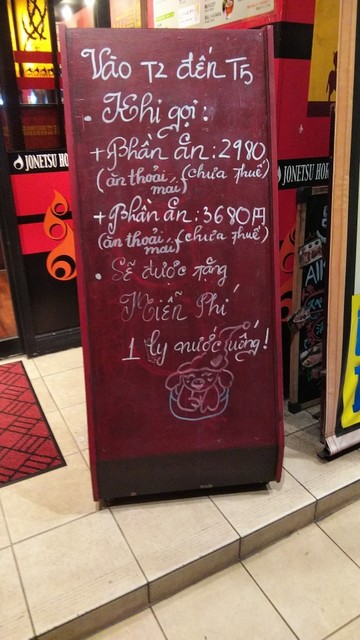 Vào T2 đến T5
. Khi gọi :
+ Phần ăn : 2980
(ăn thoải mái) (chưa thuế)
+ Phần ăn : 3680円
(ăn thoải mái) (chưa thuế)
. Sẽ được tặng
Miễn Phí
1 ly nước uống !
JONETSU HOR
JONETSU HOR
All